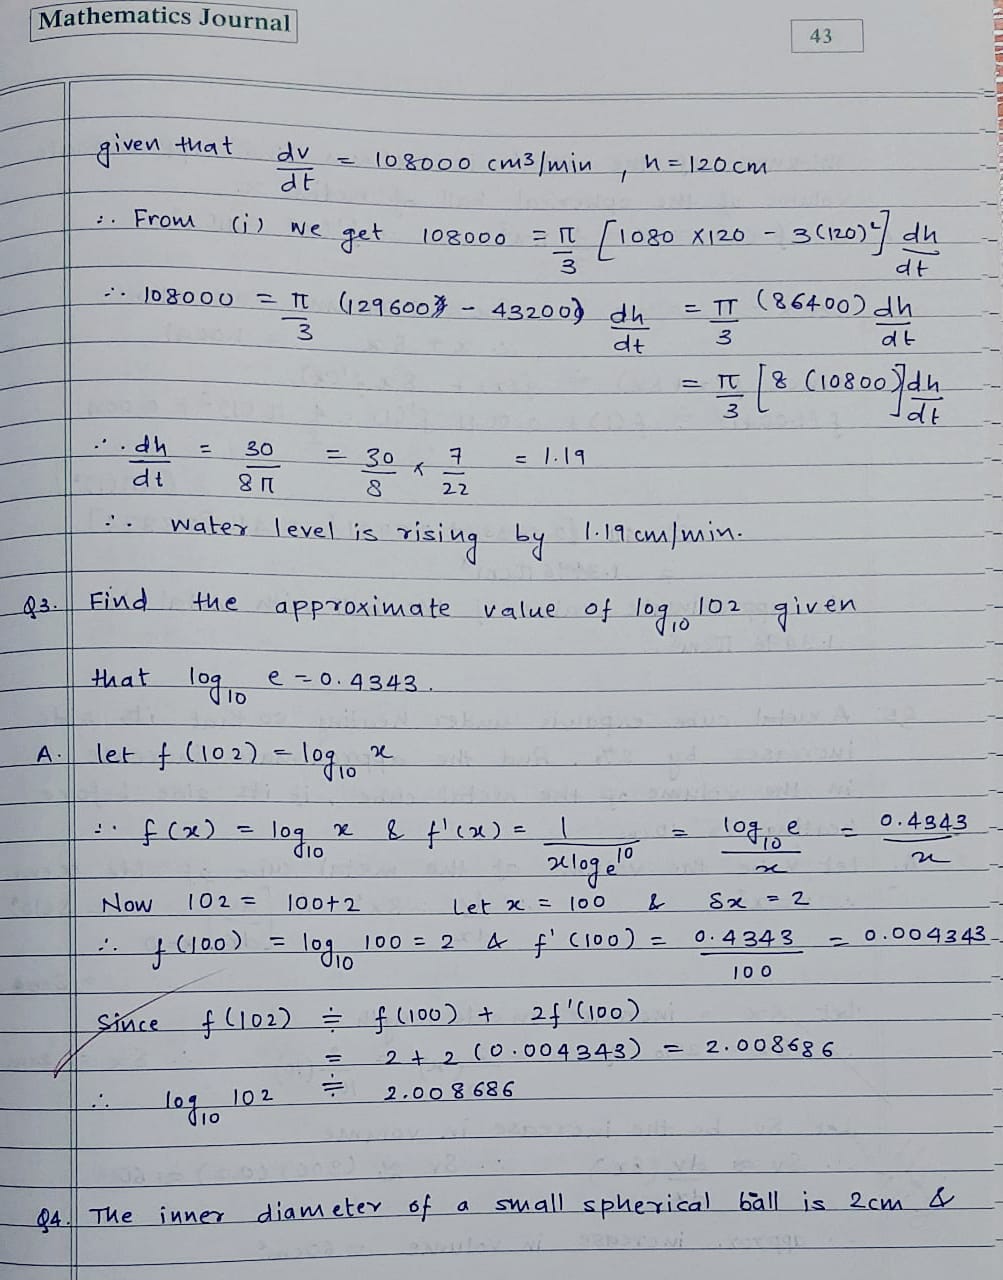 Mathematics Journal
43
given that dv/dt = 108000 cm3/min , h = 120 cm
∴ From (i) we get 108000 = π/3 [1080 x 120 - 3(120)²] dh/dt
∴ 108000 = π/3 (129600 - 43200) dh/dt = π/3 (86400) dh/dt
= π/3 [8 (10800] dh/dt
∴ dh/dt = 30/8π = 30/8 x 7/22 = 1.19
∴ water level is rising by 1.19 cm/min.
Q3. Find the approximate value of log₁₀ 102 given
that log₁₀ e = 0.4343.
A. let f (102) = log₁₀ x
∴ f (x) = log₁₀ x & f'(x) = 1/(x logₑ 10) = log₁₀ e/x = 0.4343/x
Now 102 = 100+2 Let x = 100 & δx = 2
∴ f (100) = log₁₀ 100 = 2 & f' (100) = 0.4343/100 = 0.004343
Since f (102) ≑ f (100) + 2f'(100)
= 2 + 2 (0.004343) = 2.008686
∴ log₁₀ 102 ≑ 2.008686
Q4. The inner diameter of a small spherical ball is 2cm &